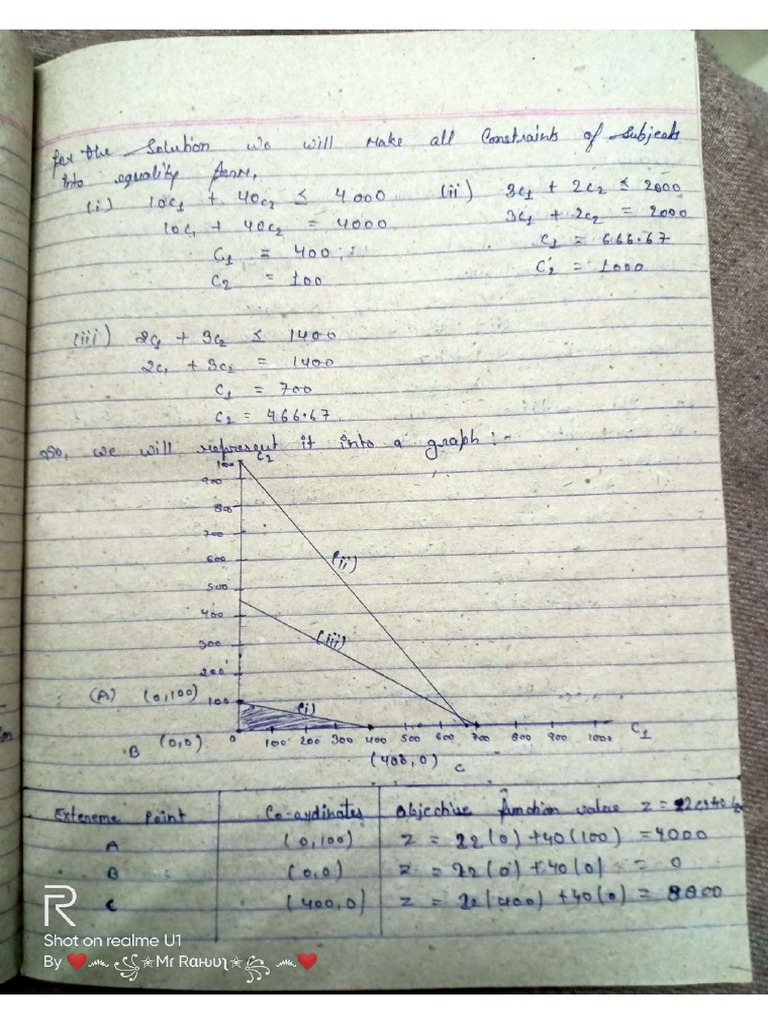 for the Solution we will make all constraints of subjects
into equality form,
(i) 10c1 + 40c2 ≤ 4000 (ii) 3c1 + 2c2 ≤ 2000
10c1 + 40c2 = 4000 3c1 + 2c2 = 2000
C1 = 400 c1 = 666.67
C2 = 100 C2 = 1000
(iii) 2c1 + 3c2 ≤ 1400
2c1 + 3c2 = 1400
C1 = 700
C2 = 466.67
so, we will represent it into a graph :-
C2
900
800
700
(ii)
600
500
400
(iii)
300
200
(A) (0,100) 100 (i)
B (0,0) 0 100 200 300 400 500 600 700 800 900 1000 C1
(400,0) C
Exteneme Point Co-ordinates Objective function value Z =
A (0,100) Z = 22(0) + 40(100) = 4000
B (0,0) Z = 22(0) + 40(0) = 0
C (400,0) Z = 22(400) + 40(0) = 8800
R
Shot on realme U1
By ❤️ Mr Rαԋυɳ ❤️